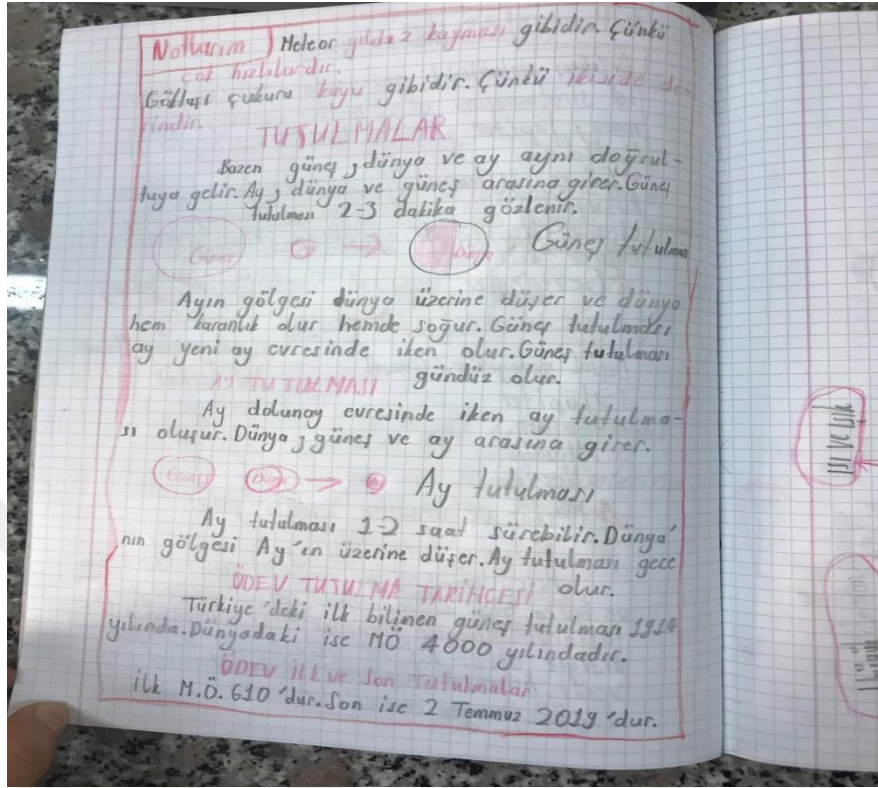 Notlarım Meteor yıldız kayması gibidir. Çünkü
çok hızlılardır.
Göktaşı çukuru kuyu gibidir. Çünkü ikiside de-
rindir.
TUTULMALAR
Bazen güneş, dünya ve ay aynı doğrul-
tuya gelir. Ay, dünya ve güneş arasına girer. Güneş
tutulması 2-3 dakika gözlenir.
Güneş Dünya Güneş tutulması
Ayın gölgesi dünya üzerine düşer ve dünya
hem karanlık olur hemde soğur. Güneş tutulması
ay yeni ay evresinde iken olur. Güneş tutulması
gündüz olur.
AY TUTULMASI
Ay dolunay evresinde iken ay tutulma-
sı oluşur. Dünya, güneş ve ay arasına girer.
Güneş Dünya Ay tutulması
Ay tutulması 1-2 saat sürebilir. Dünya'
nın gölgesi Ay'ın üzerine düşer. Ay tutulması gece
olur.
ÖDEV TUTULMA TARİHÇESİ
Türkiye'deki ilk bilinen güneş tutulması 1914
yılında. Dünyadaki ise MÖ 4000 yılındadır.
ÖDEV İlk ve Son Tutulmalar
ilk M.Ö. 610'dur. Son ise 2 Temmuz 2019'dur.